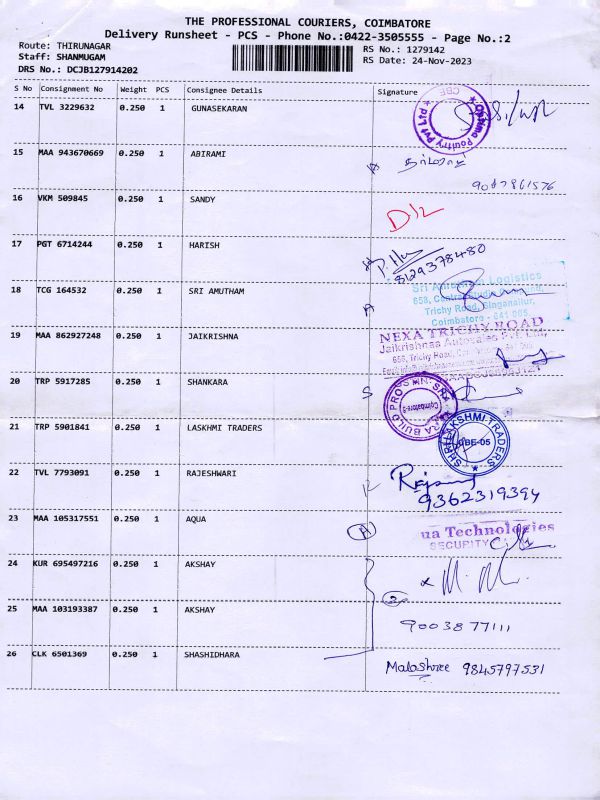 THE PROFESSIONAL COURIERS, COIMBATORE
Delivery Runsheet - PCS - Phone No.:0422-3505555 - Page No.:2
Route: THIRUNAGAR RS No.: 1279142
Staff: SHANMUGAM RS Date: 24-Nov-2023
DRS No.: DCJB127914202
S No Consignment No Weight PCS Consignee Details Signature
14 TVL 3229632 0.250 1 GUNASEKARAN
Poultry Pvt Ltd CBE
15 MAA 943670669 0.250 1 ABIRAMI
9087861576
16 VKM 509845 0.250 1 SANDY
D/L
17 PGT 6714244 0.250 1 HARISH
8129378480
18 TCG 164532 0.250 1 SRI AMUTHAM
Logistics
Trichy Road, Singanallur,
Coimbatore - 641 005.
19 MAA 862927248 0.250 1 JAIKRISHNA
NEXA TRICHY ROAD
Jaikrishnaa Autosales Pvt. Ltd.,
656, Trichy Road,
20 TRP 5917285 0.250 1 SHANKARA
BUILD PRO Coimbatore-5
21 TRP 5901841 0.250 1 LASKHMI TRADERS
LAKSHMI TRADERS CBE-05
22 TVL 7793091 0.250 1 RAJESHWARI
9362319394
23 MAA 105317551 0.250 1 AQUA
A
ua Technologies
SECURITY
24 KUR 695497216 0.250 1 AKSHAY
2
25 MAA 103193387 0.250 1 AKSHAY
9003877111
26 CLK 6501369 0.250 1 SHASHIDHARA
Malashree 9845797531